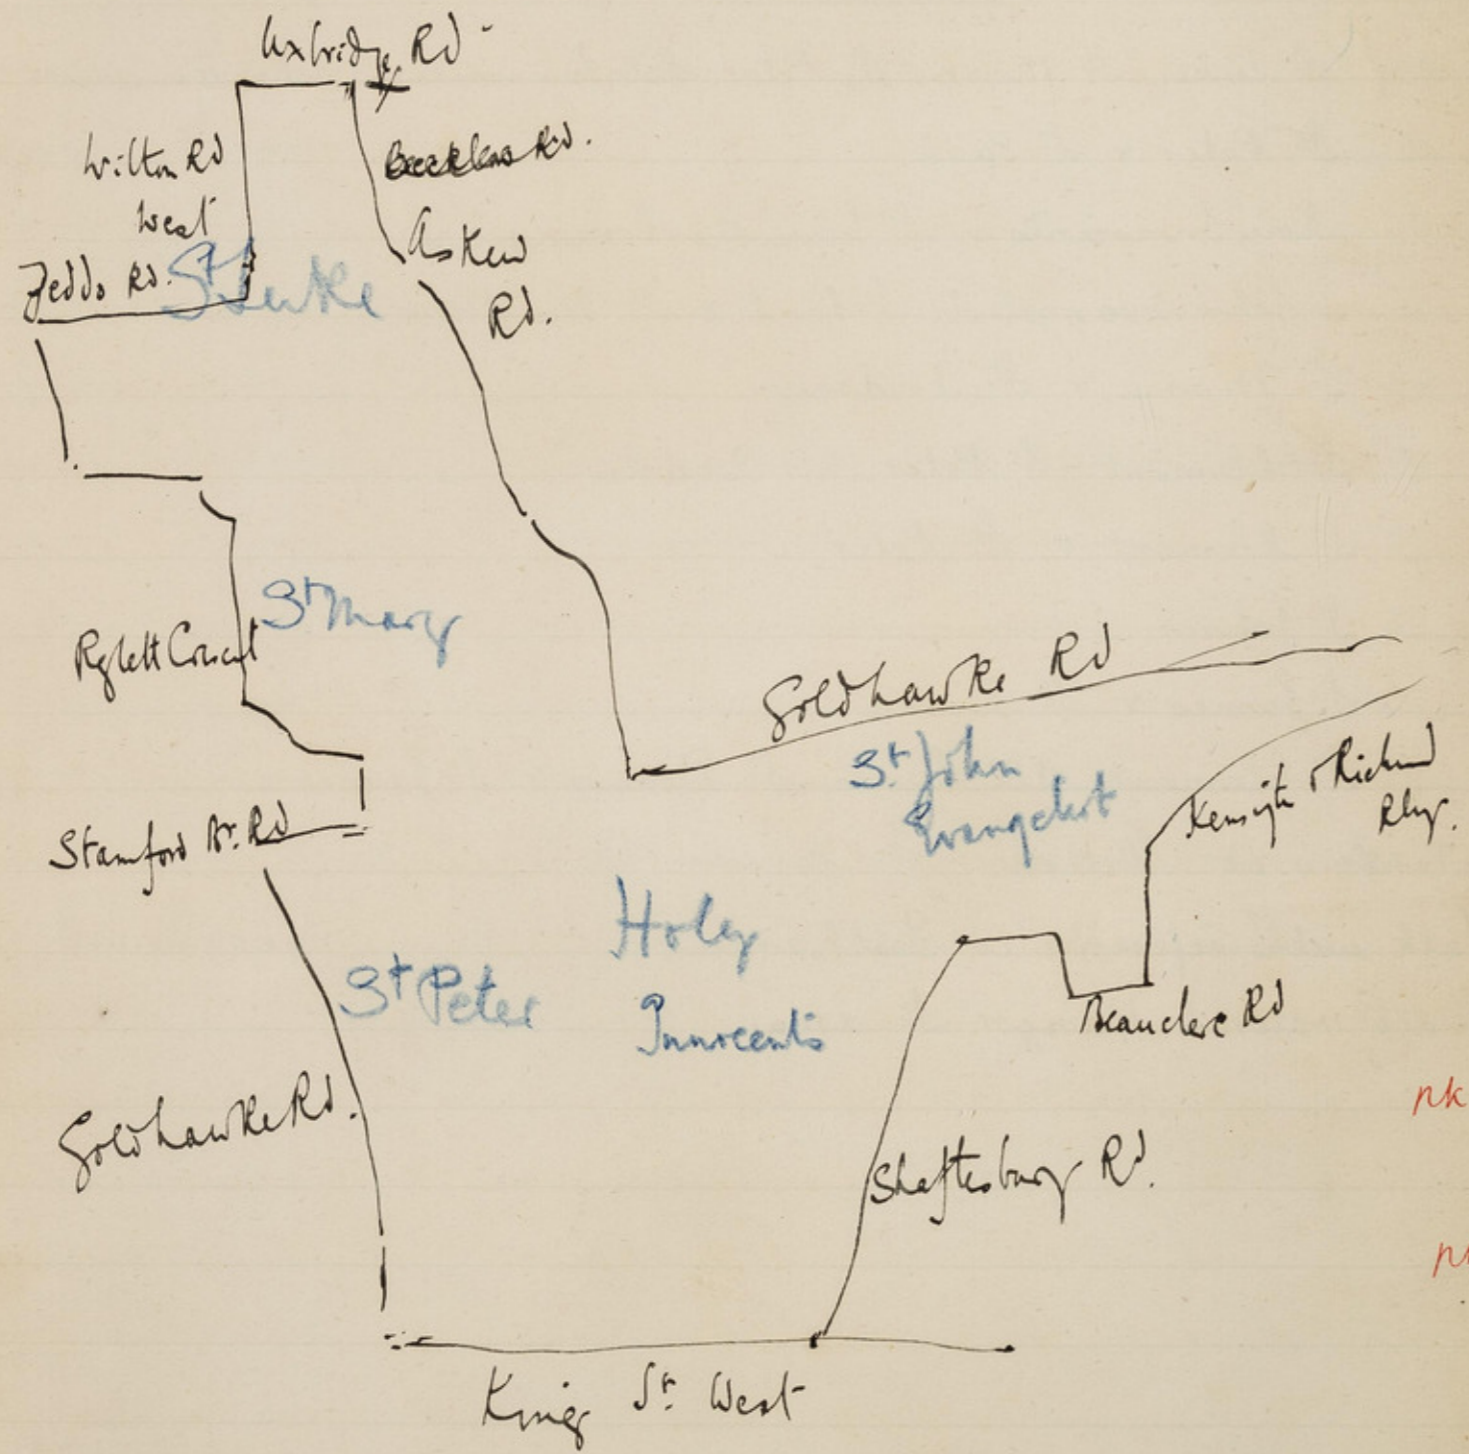 Uxbridge Rd
Wilton Rd
West
Askew
Rd.
Zeddo Rd.
St Luke
St Mary
Rylett Crescent
Goldhawke Rd
St John
Evangelist
Kensigtn & Richmd
Rly.
Stamford Br. Rd
Holy
Innocents
St Peter
Beauclerc Rd
Goldhawke Rd.
Shaftesbury Rd.
King St. West
nk